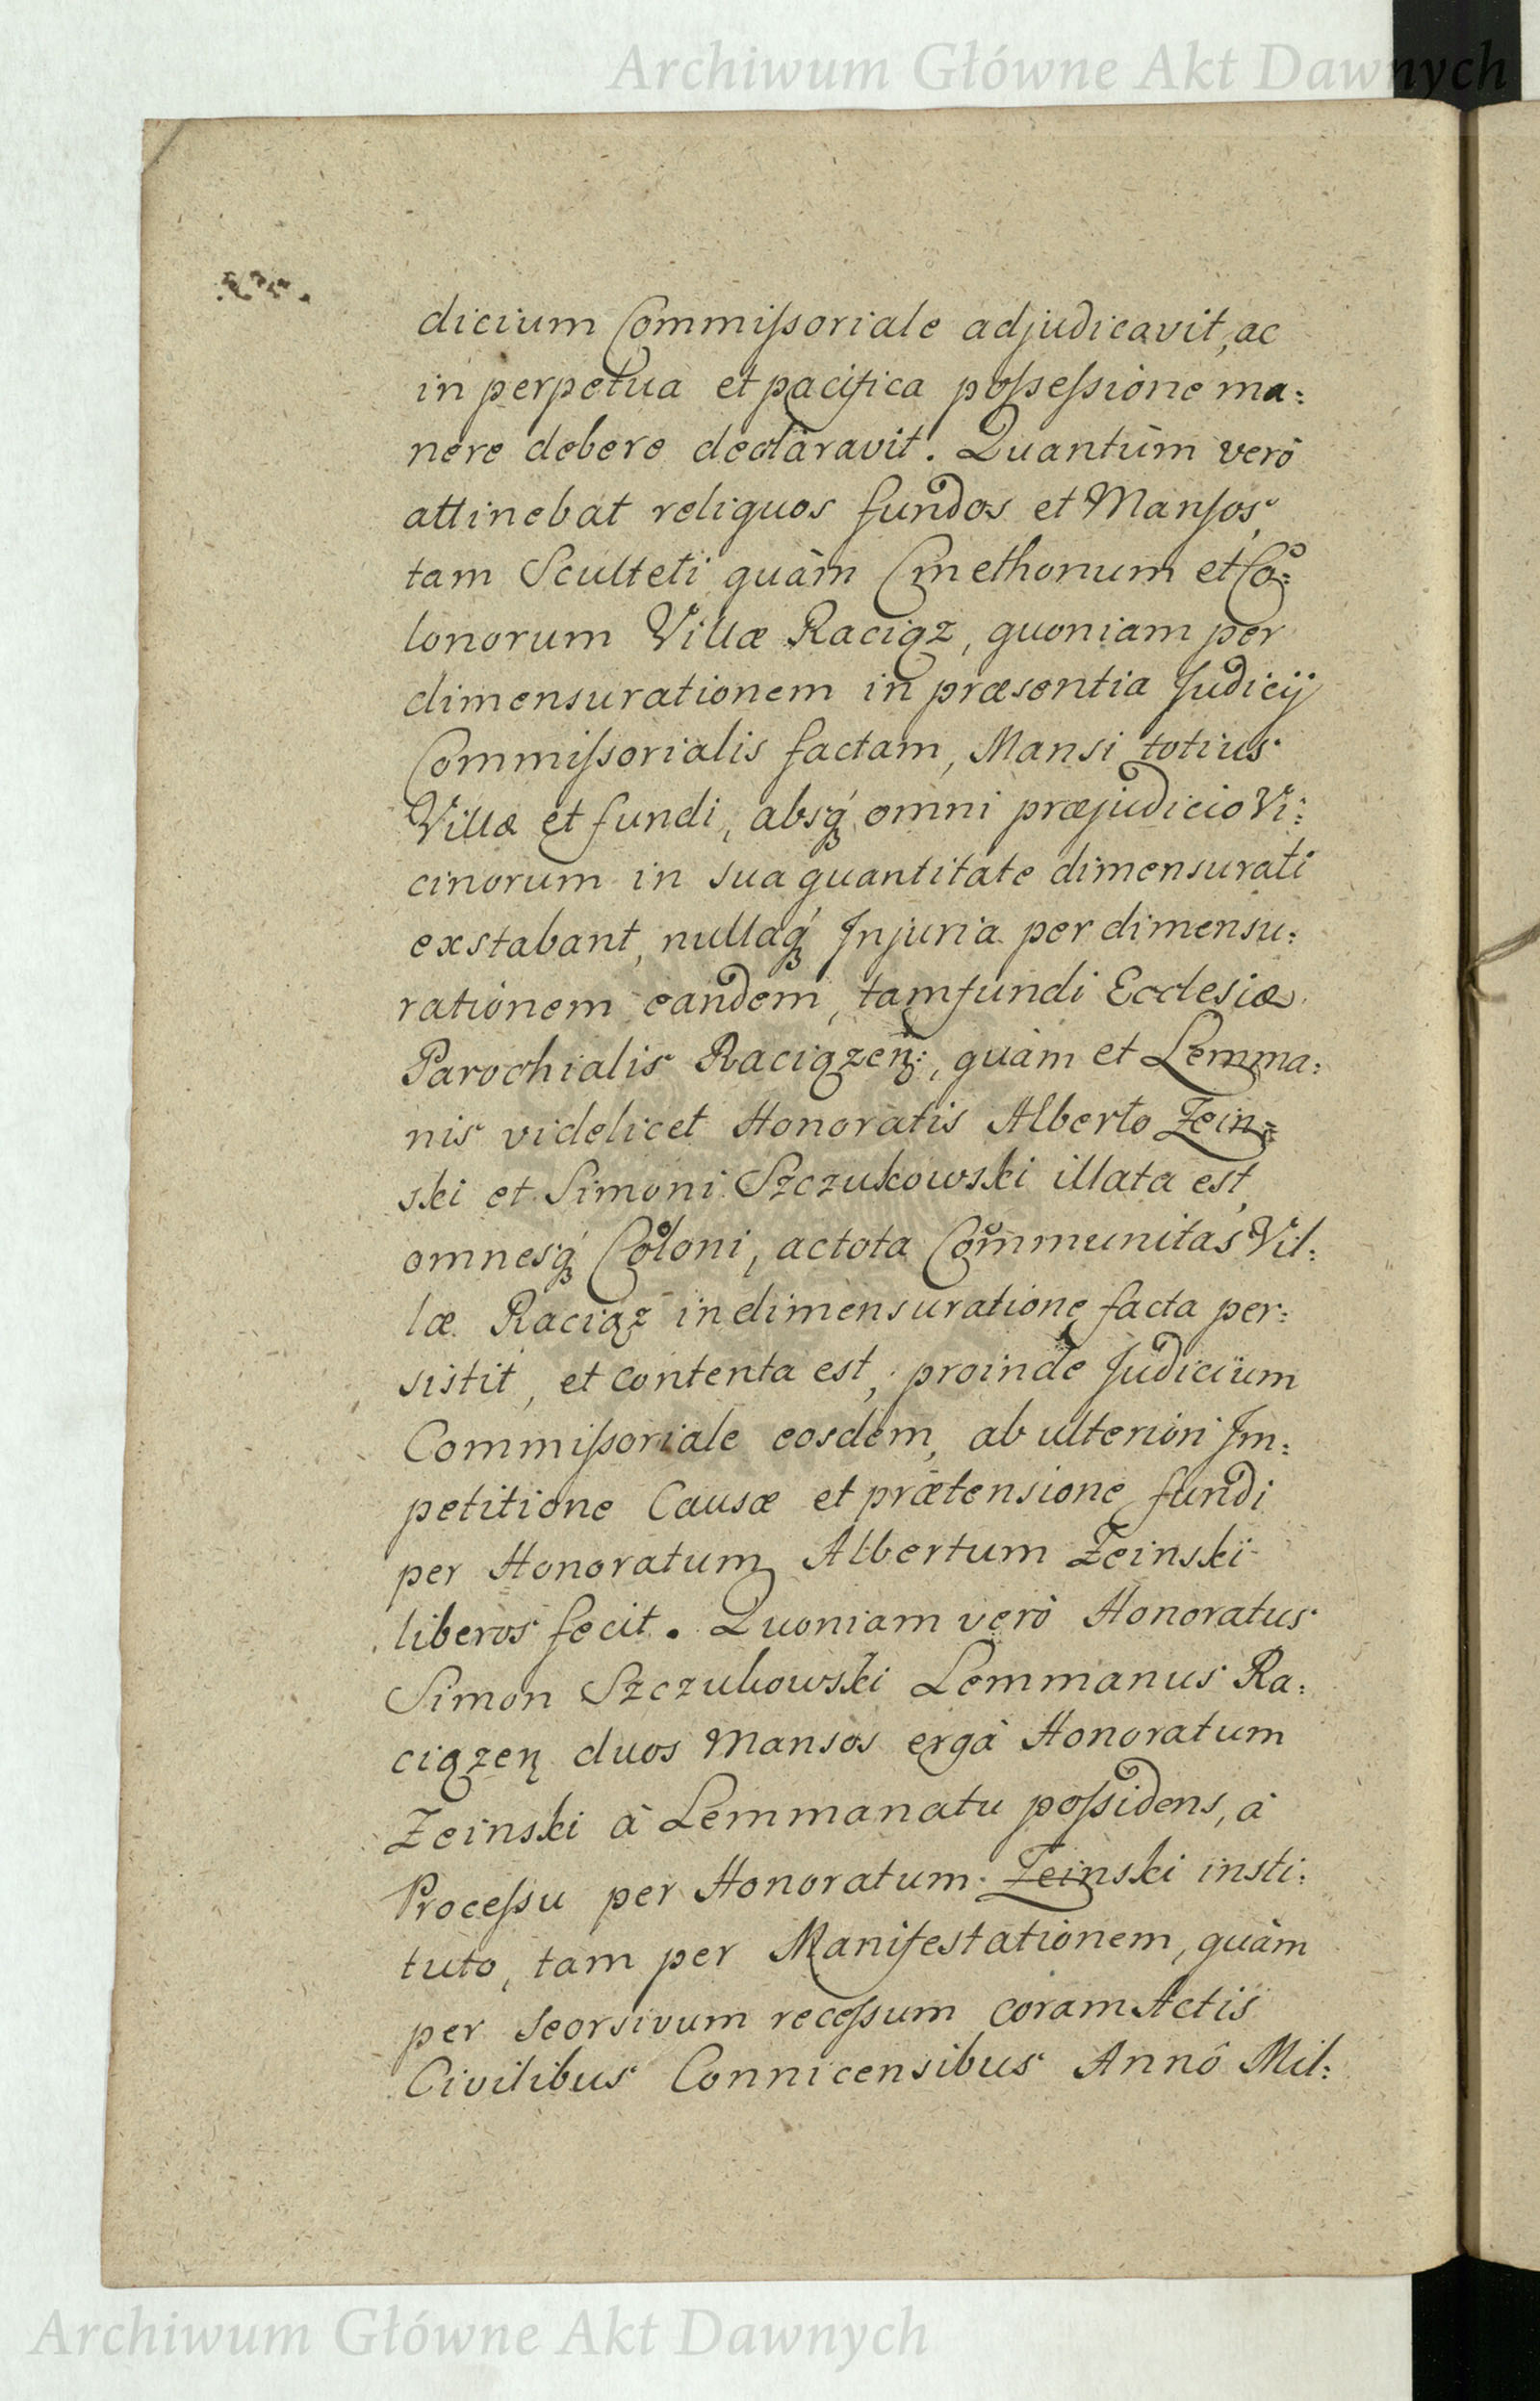 Archiwum Główne Akt Dawnych
dicium Commiſsoriale adjudicavit, ac
in perpetua et pacifica poſseſsione ma:
nere debere declaravit. Quantùm verò
attinebat reliquos fundos et Manſos,
tam Sculteti quàm Cmethonum et Co:
lonorum Villæ Raciąz, quoniam per
dimensurationem in præsentia Judicij
Commiſsorialis factam, Mansi totius
Villæ et fundi, absq́ omni præjudicio Vi:
cinorum in sua quantitate dimensurati
exstabant, nullaq́ Injuria per dimensu:
rationem eandem, tam fundi Ecclesiæ
Parochialis Raciązeń:, quàm et Lemma:
nis videlicet Honoratis Alberto Zein=
ski et Simoni Szczukowski illata est,
omnesq́ Coloni, ac tota Communitas Vil:
læ Raciąz in dimensuratione facta per:
sistit, et contenta est, proinde Judicium
Commiſsoriale eosdem, ab ulteriori Im:
petitione Causæ et prætensione fundi
per Honoratum Albertum Zeinski
liberos fecit. Quoniam verò Honoratus
Simon Szczukowski Lemmanus Ra:
ciązeń duos Mansos ergà Honoratum
Zeinski à Lemmanatu poſsidens, à
Proceſsu per Honoratum Zeinski insti:
tuto, tam per Manifestationem, quàm
per seorsivum receſsum coram Actis
Civilibus Connicensibus Annô Mil:
Archiwum Główne Akt Dawnych